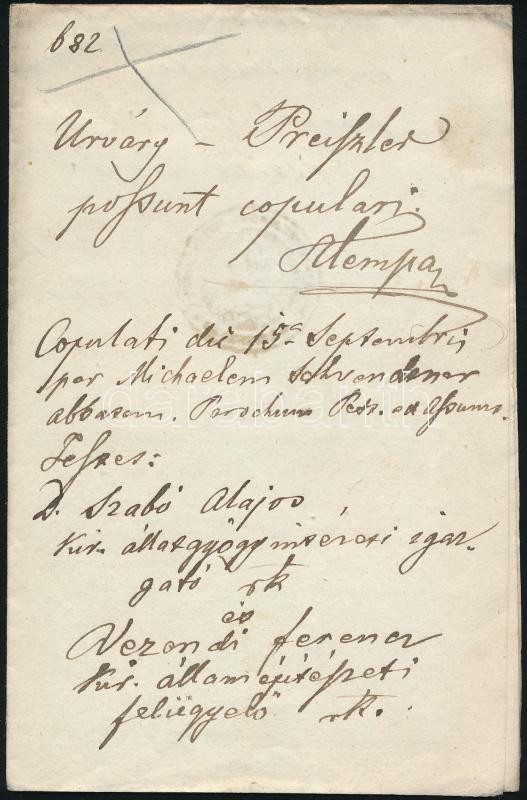 682
Urváry – Preiszler
possunt copulari.
Stempa
Copulati die 15a Septembris
per Michaelem Schvendtner
abbatem, Parochum Pest. ad Assumt.
Testes:
D. Szabó Alajos
kir. állatgyógyintézeti igaz-
gató rk
és
Ferencz
kir. állam építészeti
felügyelő rk.
darabanth